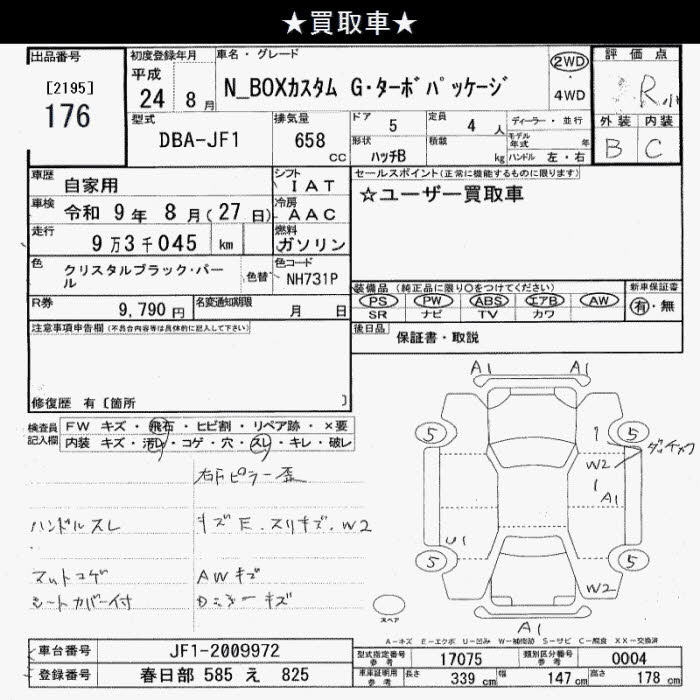 ★買取車★
出品番号
[2195]
176
初度登録年月
平成
24 8月
車名・グレード
N_BOXカスタム G・ターボパッケージ
2WD
・
4WD
評価点
R小
外装 内装
B C
型式
DBA-JF1
排気量
658
CC
ドア 5
定員 4 人
形状 ハッチB
積載 kg
ディーラー・並行
モデル年式 年
ハンドル 左・右
車歴 自家用
シフト IAT
車検 令和 9年 8月(27日)
冷房 AAC
走行 9万3千045 km
燃料 ガソリン
色 クリスタルブラック・パール
色替
色コード NH731P
R券 9,790円
名変通知期限 月 日
セールスポイント(正常に機能するものに限ります)
☆ユーザー買取車
装備品 (純正品に限り○をつけてください)
PS PW ABS エアB AW
SR ナビ TV カワ
新車保証書
有・無
後日品 保証書・取説
注意事項申告欄(不具合内容等は具体的に記入して下さい)
修復歴 有 [箇所 ]
検査員記入欄
FW キズ・飛石・ヒビ割・リペア跡・×要
内装 キズ・汚レ・コゲ・穴・スレ・キレ・破レ
右Fピラー歪
ハンドルスレ
キズE.スリキズ.W2
マットコゲ
AWキズ
シートカバー付
A1 A1
5 5
1
ダッチメワ
W2
1
A1
U1
5 5
W2
スペア
A1
A-キズ E-エクボ U-凹み W-補修跡 S-サビ C-腐食 XX-交換済
車台番号 JF1-2009972
登録番号 春日部 585 え 825
型式指定番号参考 17075
類別区分番号参考 0004
車庫証明用参考
長さ 339 cm
幅 147 cm
高さ 178 cm